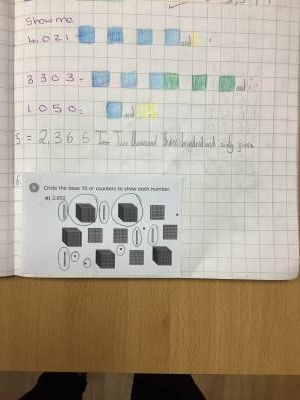 Show me
4021 = and
3303 = and :
1050 = and
5 = 2,365 Two thousand three hundred and sixty
6.
Circle the base 10 or counters to show each number.
a) 2,053